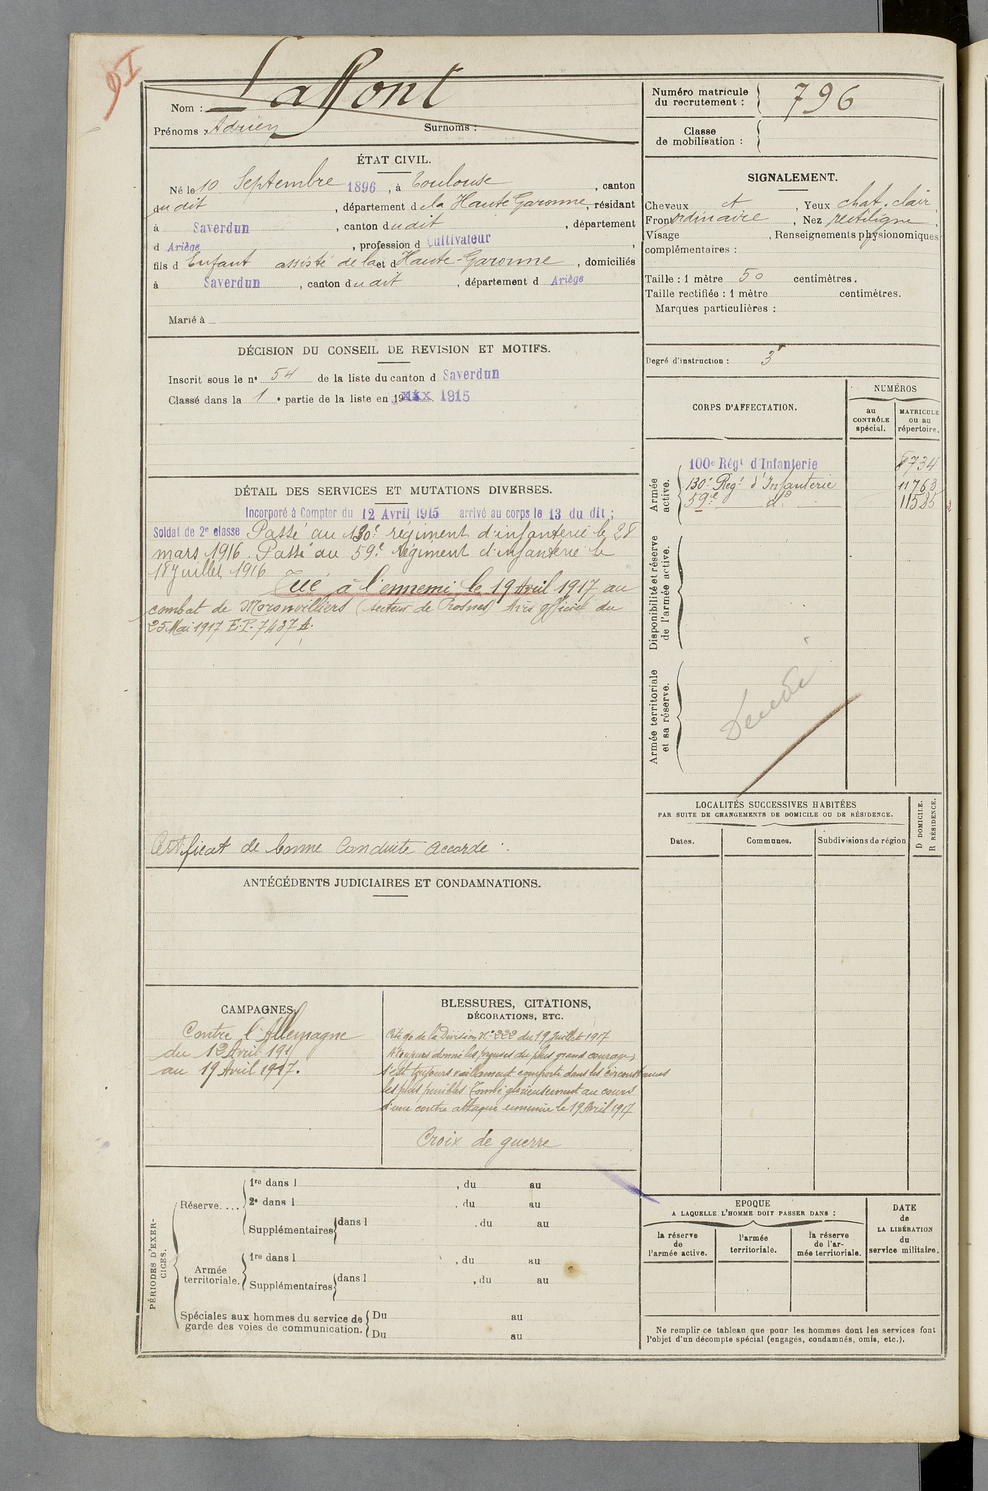 Nom : Laffont
Prénoms : Adrien Surnoms :
Numéro matricule du recrutement : 796
Classe de mobilisation :
ÉTAT CIVIL.
Né le 10 Septembre 1896, à Toulouse, canton
dudit, département de la Haute Garonne, résidant
à Saverdun, canton dudit, département
d Ariège, profession d Cultivateur
fils d Enfant assisté de la et d Haute-Garonne, domiciliés
à Saverdun, canton dudit, département d Ariège
Marié à
SIGNALEMENT.
Cheveux ct, Yeux chat. clair,
Front ordinaire, Nez rectiligne
Visage , Renseignements physionomiques
complémentaires :
Taille : 1 mètre 50 centimètres.
Taille rectifiée : 1 mètre centimètres.
Marques particulières :
Degré d'instruction : 3
DÉCISION DU CONSEIL DE REVISION ET MOTIFS.
Inscrit sous le n° 54 de la liste du canton d Saverdun
Classé dans la 1e partie de la liste en 19 1915
CORPS D'AFFECTATION.
NUMÉROS
au CONTRÔLE spécial.
MATRICULE ou au répertoire.
Armée active.
100e Régt d'Infanterie 8734
130e Régt d'Infanterie 11763
59e do 11585
Disponibilité et réserve de l'armée active.
Armée territoriale et sa réserve.
Décédé
DÉTAIL DES SERVICES ET MUTATIONS DIVERSES.
Incorporé à Compter du 12 Avril 1915 arrivé au corps le 13 du dit ;
Soldat de 2e classe Passé au 130e régiment d'infanterie le 28
mars 1916. Passé au 59e régiment d'infanterie le
18 juillet 1916
Tué à l'ennemi le 19 Avril 1917 au
combat de Moronvilliers (secteur de Prosnes) Avis officiel du
25 Mai 1917 E.P. 7437
Certificat de bonne Conduite Accordé.
LOCALITÉS SUCCESSIVES HABITÉES
PAR SUITE DE CHANGEMENTS DE DOMICILE OU DE RÉSIDENCE.
Dates. Communes. Subdivisions de région
D DOMICILE. R RÉSIDENCE.
ANTÉCÉDENTS JUDICIAIRES ET CONDAMNATIONS.
CAMPAGNES.
Contre l'Allemagne
du 12 Avril 191
au 19 Avril 1917.
BLESSURES, CITATIONS,
DÉCORATIONS, ETC.
Cité go de la Division N° 222 du 19 Juillet 1917
A toujours donné les preuves du plus grand courage,
s'est toujours vaillamment comporté dans les circonstances
les plus pénibles Tombé glorieusement au cours
d'une contre attaque ennemie le 19 Avril 1917
Croix de guerre
PÉRIODES D'EXERCICES.
Réserve....
1re dans l , du au
2e dans l , du au
Supplémentaires dans l , du au
Armée territoriale.
1re dans l , du au
Supplémentaires dans l , du au
Spéciales aux hommes du service de garde des voies de communication.
Du au
Du au
EPOQUE
A LAQUELLE L'HOMME DOIT PASSER DANS :
la réserve de l'armée active.
l'armée territoriale.
la réserve de l'armée territoriale.
DATE de LA LIBÉRATION du service militaire.
Ne remplir ce tableau que pour les hommes dont les services font
l'objet d'un décompte spécial (engagés, condamnés, omis, etc.).